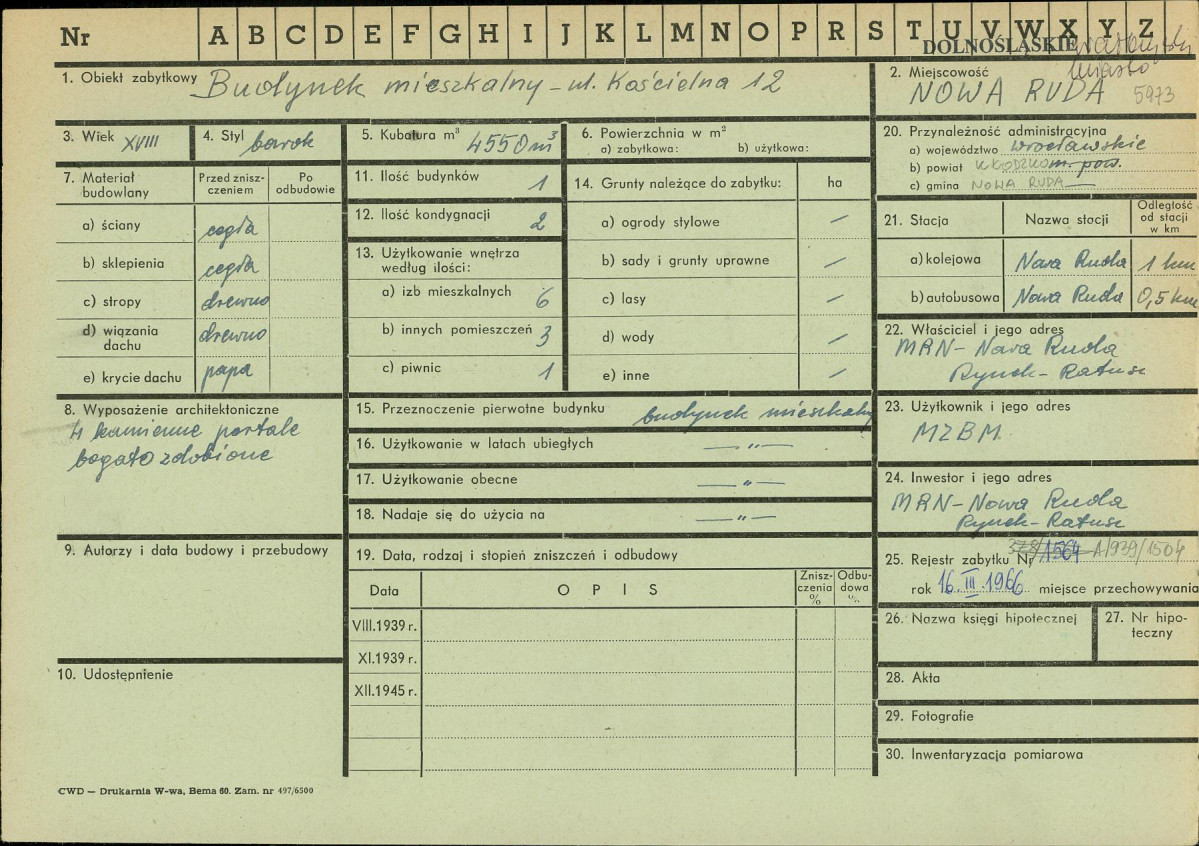 Nr A B C D E F G H I J K L M N O P R S T U V W X Y Z
DOLNOŚLĄSKIE
miasto
1. Obiekt zabytkowy Budynek mieszkalny - ul. Kościelna 12
2. Miejscowość
NOWA RUDA 5973
3. Wiek XVIII
4. Styl barok
5. Kubatura m³ 4550 m³
6. Powierzchnia w m²
a) zabytkowa: b) użytkowa:
20. Przynależność administracyjna
a) województwo wrocławskie
b) powiat KŁODZKO m. pow.
c) gmina NOWA RUDA
7. Materiał budowlany
Przed znisz-
czeniem
Po
odbudowie
a) ściany cegła
b) sklepienia cegła
c) stropy drewno
d) wiązania
dachu drewno
e) krycie dachu papa
11. Ilość budynków 1
12. Ilość kondygnacji 2
13. Użytkowanie wnętrza
według ilości:
a) izb mieszkalnych 6
b) innych pomieszczeń 3
c) piwnic 1
14. Grunty należące do zabytku: ha
a) ogrody stylowe —
b) sady i grunty uprawne —
c) lasy —
d) wody —
e) inne —
21. Stacja Nazwa stacji
Odległość
od stacji
w km
a) kolejowa Nowa Ruda 1 km
b) autobusowa Nowa Ruda 0,5 km
22. Właściciel i jego adres
MRN - Nowa Ruda
Rynek - Ratusz
8. Wyposażenie architektoniczne
4 kamienne portale
bogato zdobione
15. Przeznaczenie pierwotne budynku budynek mieszkalny
16. Użytkowanie w latach ubiegłych — " —
17. Użytkowanie obecne — " —
18. Nadaje się do użycia na — " —
23. Użytkownik i jego adres
MZBM
24. Inwestor i jego adres
MRN - Nowa Ruda
Rynek - Ratusz
9. Autorzy i data budowy i przebudowy
19. Data, rodzaj i stopień zniszczeń i odbudowy
Data OPIS
Znisz-
czenia
%
Odbu-
dowa
%
VIII.1939 r.
XI.1939 r.
XII.1945 r.
25. Rejestr zabytku Nr 378/1564 A/939/1504
rok 16.III.1966 miejsce przechowywania
26. Nazwa księgi hipotecznej
27. Nr hipo-
teczny
10. Udostępnienie
28. Akta
29. Fotografie
30. Inwentaryzacja pomiarowa
CWD — Drukarnia W-wa, Bema 60. Zam. nr 497/6500